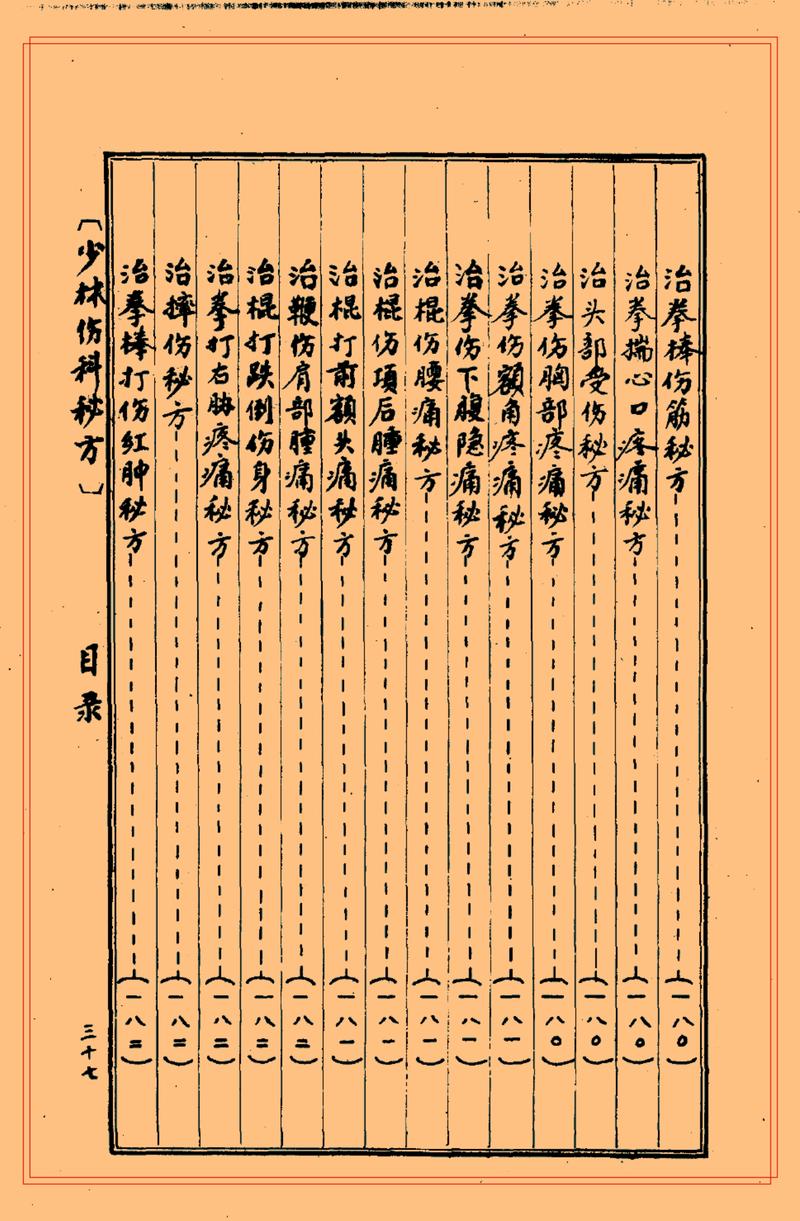 治拳棒伤筋秘方------(一八〇)
治拳揣心口疼痛秘方------(一八〇)
治头部受伤秘方------(一八〇)
治拳伤胸部疼痛秘方------(一八〇)
治拳伤额角疼痛秘方------(一八一)
治拳伤下腹隐痛秘方------(一八一)
治棍伤腰痛秘方------(一八一)
治棍伤項后腫痛秘方------(一八一)
治棍打前额头痛秘方------(一八一)
治鞭伤肩部腫痛秘方------(一八二)
治棍打跌倒伤身秘方------(一八二)
治拳打右胁疼痛秘方------(一八二)
治摔伤秘方------(一八二)
治拳棒打伤红肿秘方------(一八二)
〔少林伤科秘方〕 目录 三十七